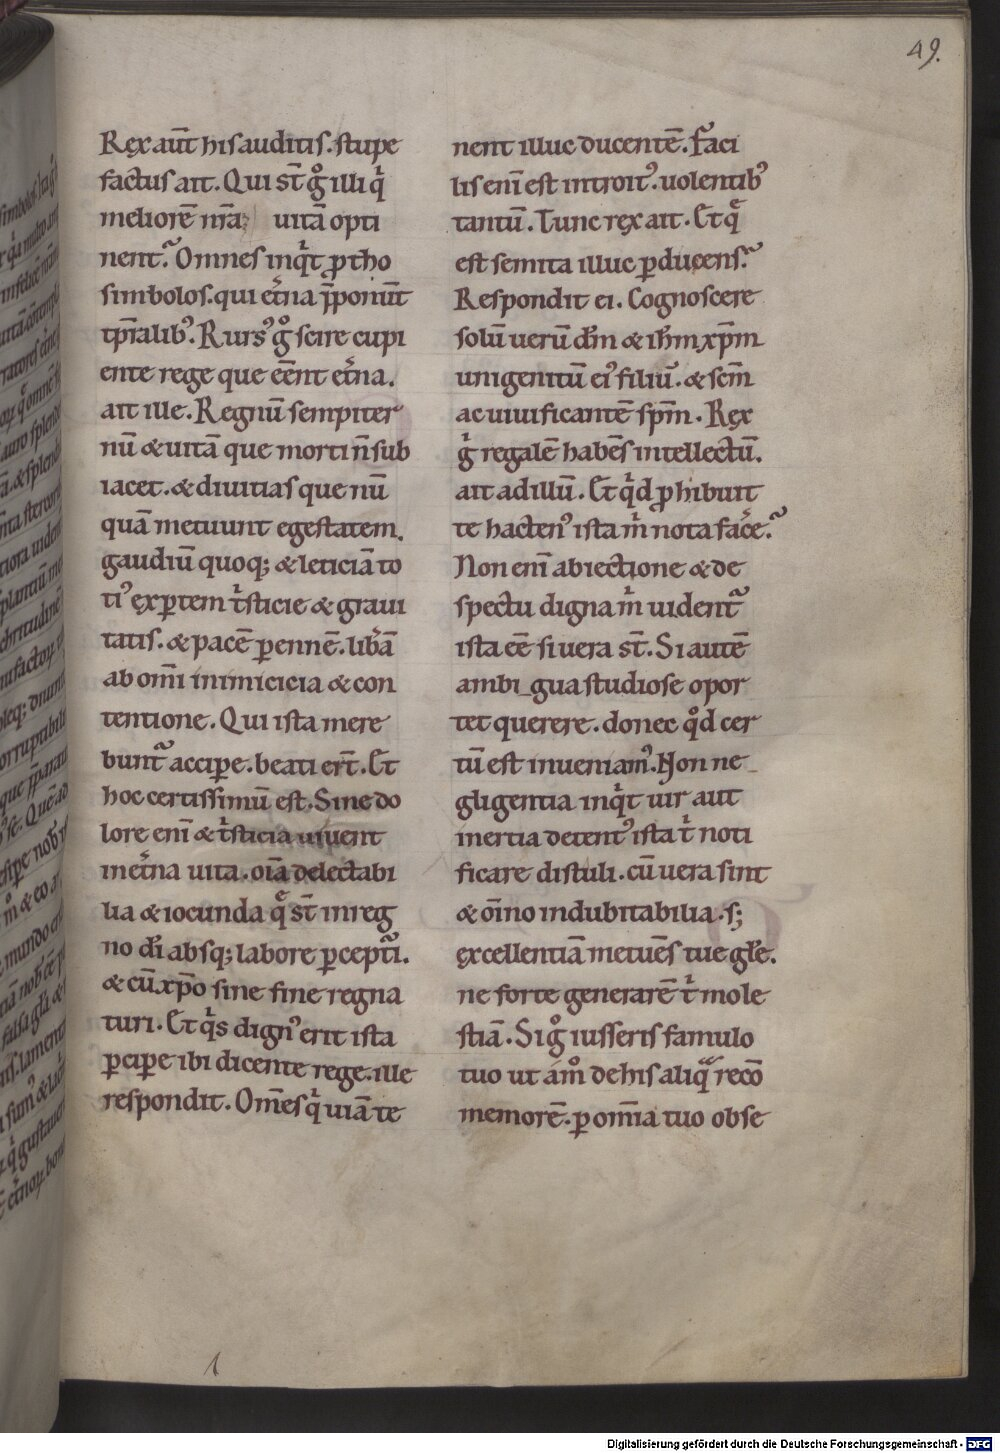 49.
Rex aut̄ his auditis. stupe
factus ait. Qui st̄ gͦ illi qͥ
meliorē nr̄a uitā opti
nent. Omnes inqͥt ꝓtho
simbolos. qui et̄na p̄ponunt
tꝑalib᾽. Rurs᾽ gͦ scire cupi
ente rege que eēnt et̄na.
ait ille. Regnū sempiter
nū & uitā que morti n̄ sub
iacet. & diuitias que nū
quā metuunt egestatem.
gaudiū quoq; & leticiā to
ti᾽ exꝑtem tͥsticie & graui
tatis. & pacē ꝑennē. lib̄ā
ab om̄i inimicicia & con
tentione. Qui ista mere
bunt᷑ accipe. beati er̄t. Et
hoc certissimū est. Sine do
lore eni̅ & tͥsticia uiuent
in et̄na uita. oīa delectabi
lia & iocunda q̄ st̄ in reg
no di̅ absq; labore ꝑcepti.
& cū xp̄o sine fine regna
turi. Et qͥs dign᾽ erit ista
ꝑcipe ibi dicente rege. ille
respondit. Om̄es qͥ uiā te
nent illuc ducentē. Faci
lis eni̅ est introit᾽. uolentib᾽
tantū. Tunc rex ait. Et q̄
est semita illuc ꝑducens.
Respondit ei. Cognoscere
solū uerū dm̄ & ihm̄ xp̄m
unigenitū ei᾽ filiū. & scm̄
ac uiuificantē spm̄. Rex
gͥ regalē habēs intellectū.
ait ad illū. Et qͥd ꝓhibuit
te hacten᾽ ista mͥ nota fac̄e.
Non eni̅ abiectione & de
spectu digna mͥ uident᷑
ista eē si uera st̄. Si autē
ambigua studiose opor
tet querere. donec qͦd cer
tū est inueniam᾽. Non ne
gligentia inqͥt uir aut
inertia detent᾽ ista tͥ noti
ficare distuli. cū uera sint
& oīno indubitabilia. s;
excellentiā metuēs tue glē.
ne forte generarē tͥ mole
stiā. Si gͦ iusseris famulo
tuo ut am̊ de his aliq̄ recō
memorē. ꝑ omīa tuo obse
Digitalisierung gefördert durch die Deutsche Forschungsgemeinschaft - DFG